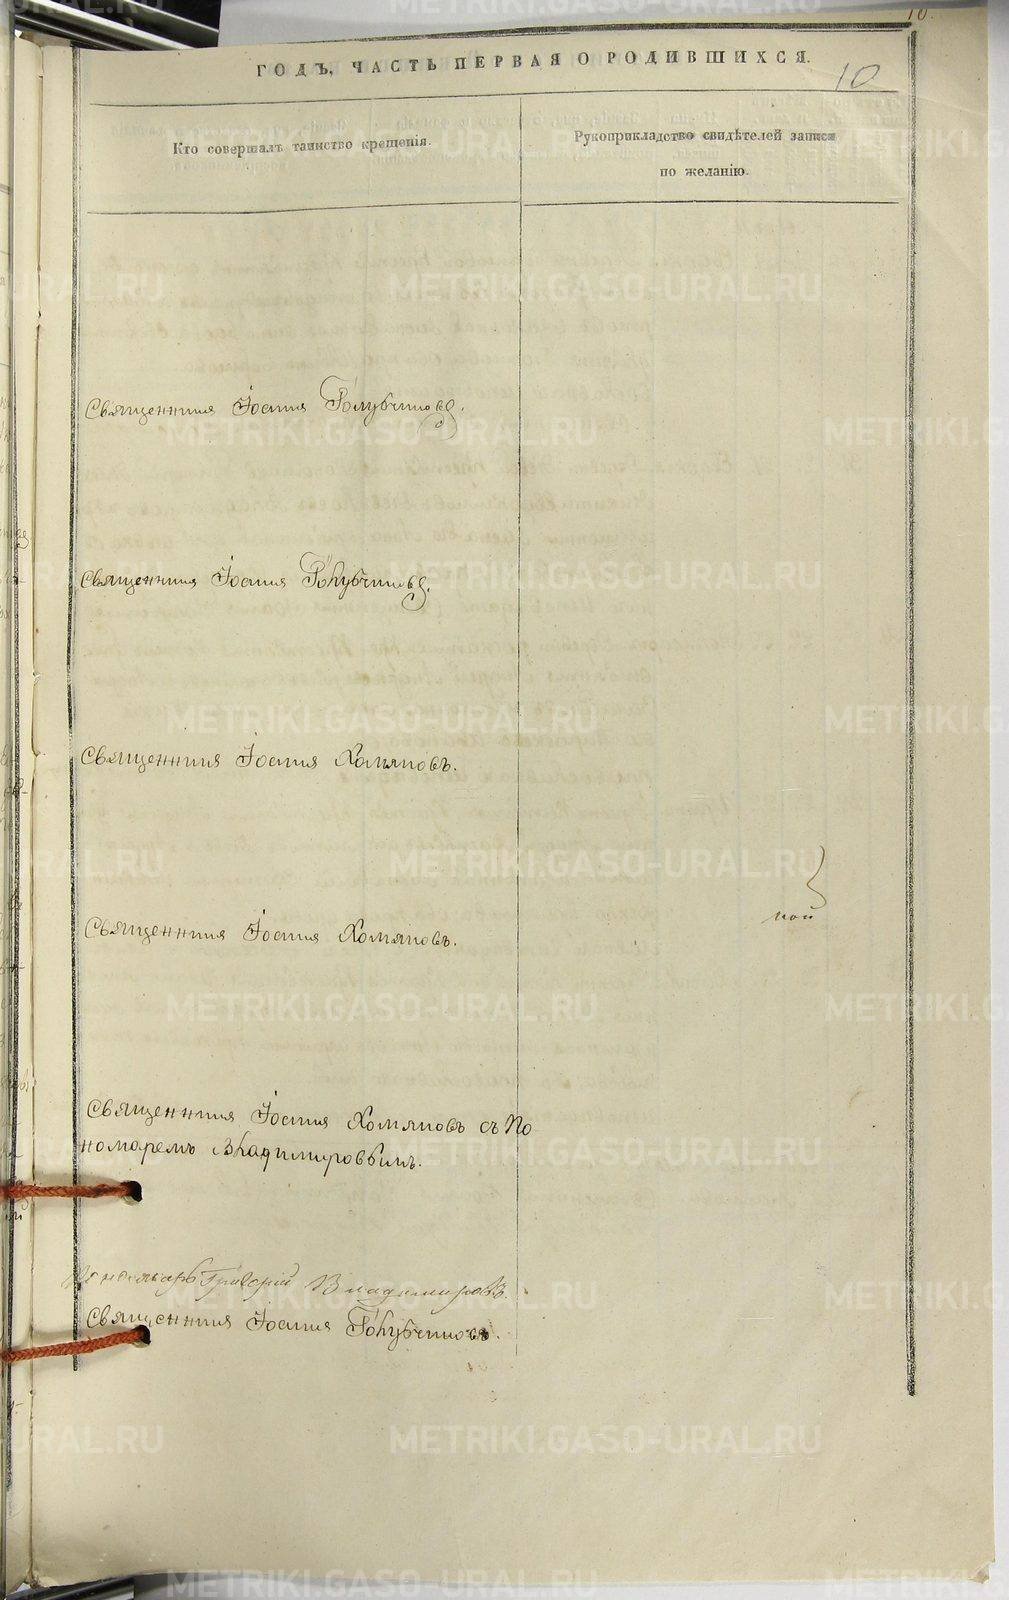 10.
ГОДЪ, ЧАСТЬ ПЕРВАЯ О РОДИВШИХСЯ.
10
Кто совершалъ таинство крещенія.
Рукоприкладство свидѣтелей записи
по желанію.
Священникъ Іоаннъ Голубчиковъ.
Священникъ Іоаннъ Голубчиковъ.
Священникъ Іоаннъ Хомяковъ.
Священникъ Іоаннъ Хомяковъ.
Священникъ Іоаннъ Хомяковъ съ По
номаремъ Владимировымъ.
Пономарь Григорій Владимировъ.
Священникъ Іоаннъ Голубчиковъ.
METRIKI.GASO-URAL.RU